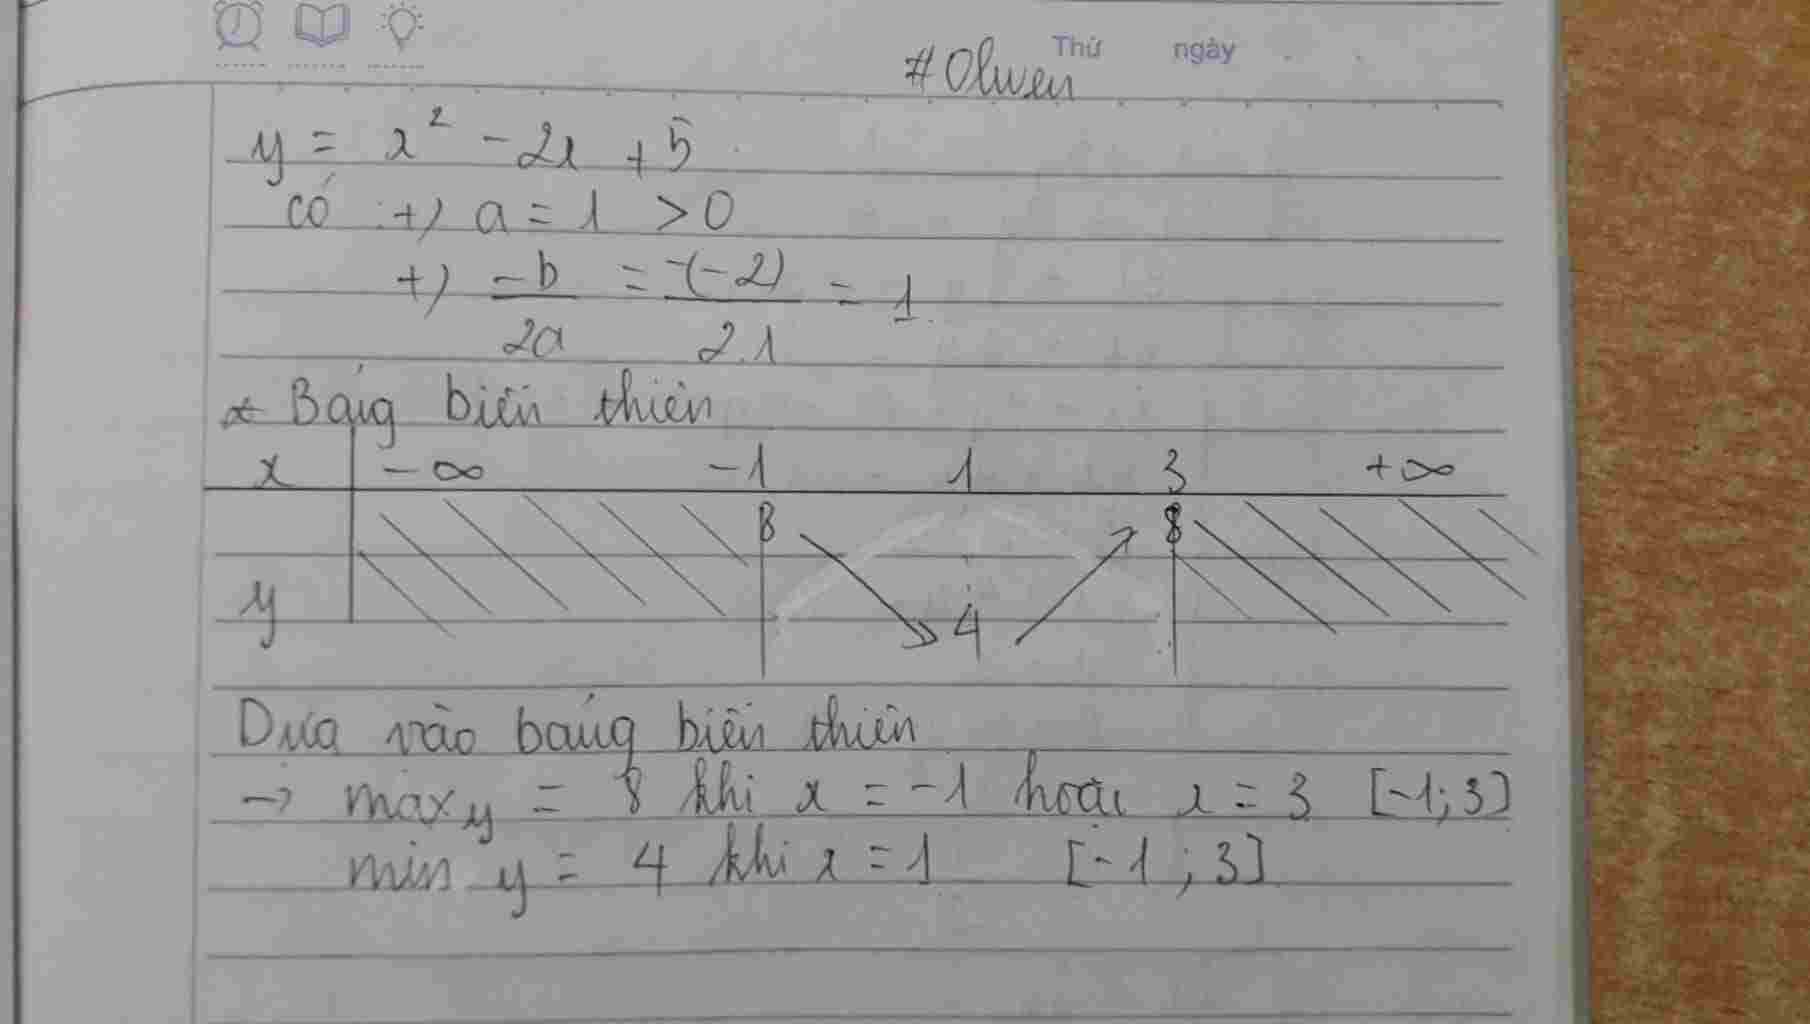 Thứ ngày
#Olwen
y = x² - 2x + 5
có : +) a = 1 > 0
+) -b/2a = -(-2)/2.1 = 1
* Bảng biến thiên
x -∞ -1 1 3 +∞
8 8
y 4
Dựa vào bảng biến thiên
→ max y = 8 khi x = -1 hoặc x = 3 [-1; 3]
min y = 4 khi x = 1 [-1; 3]